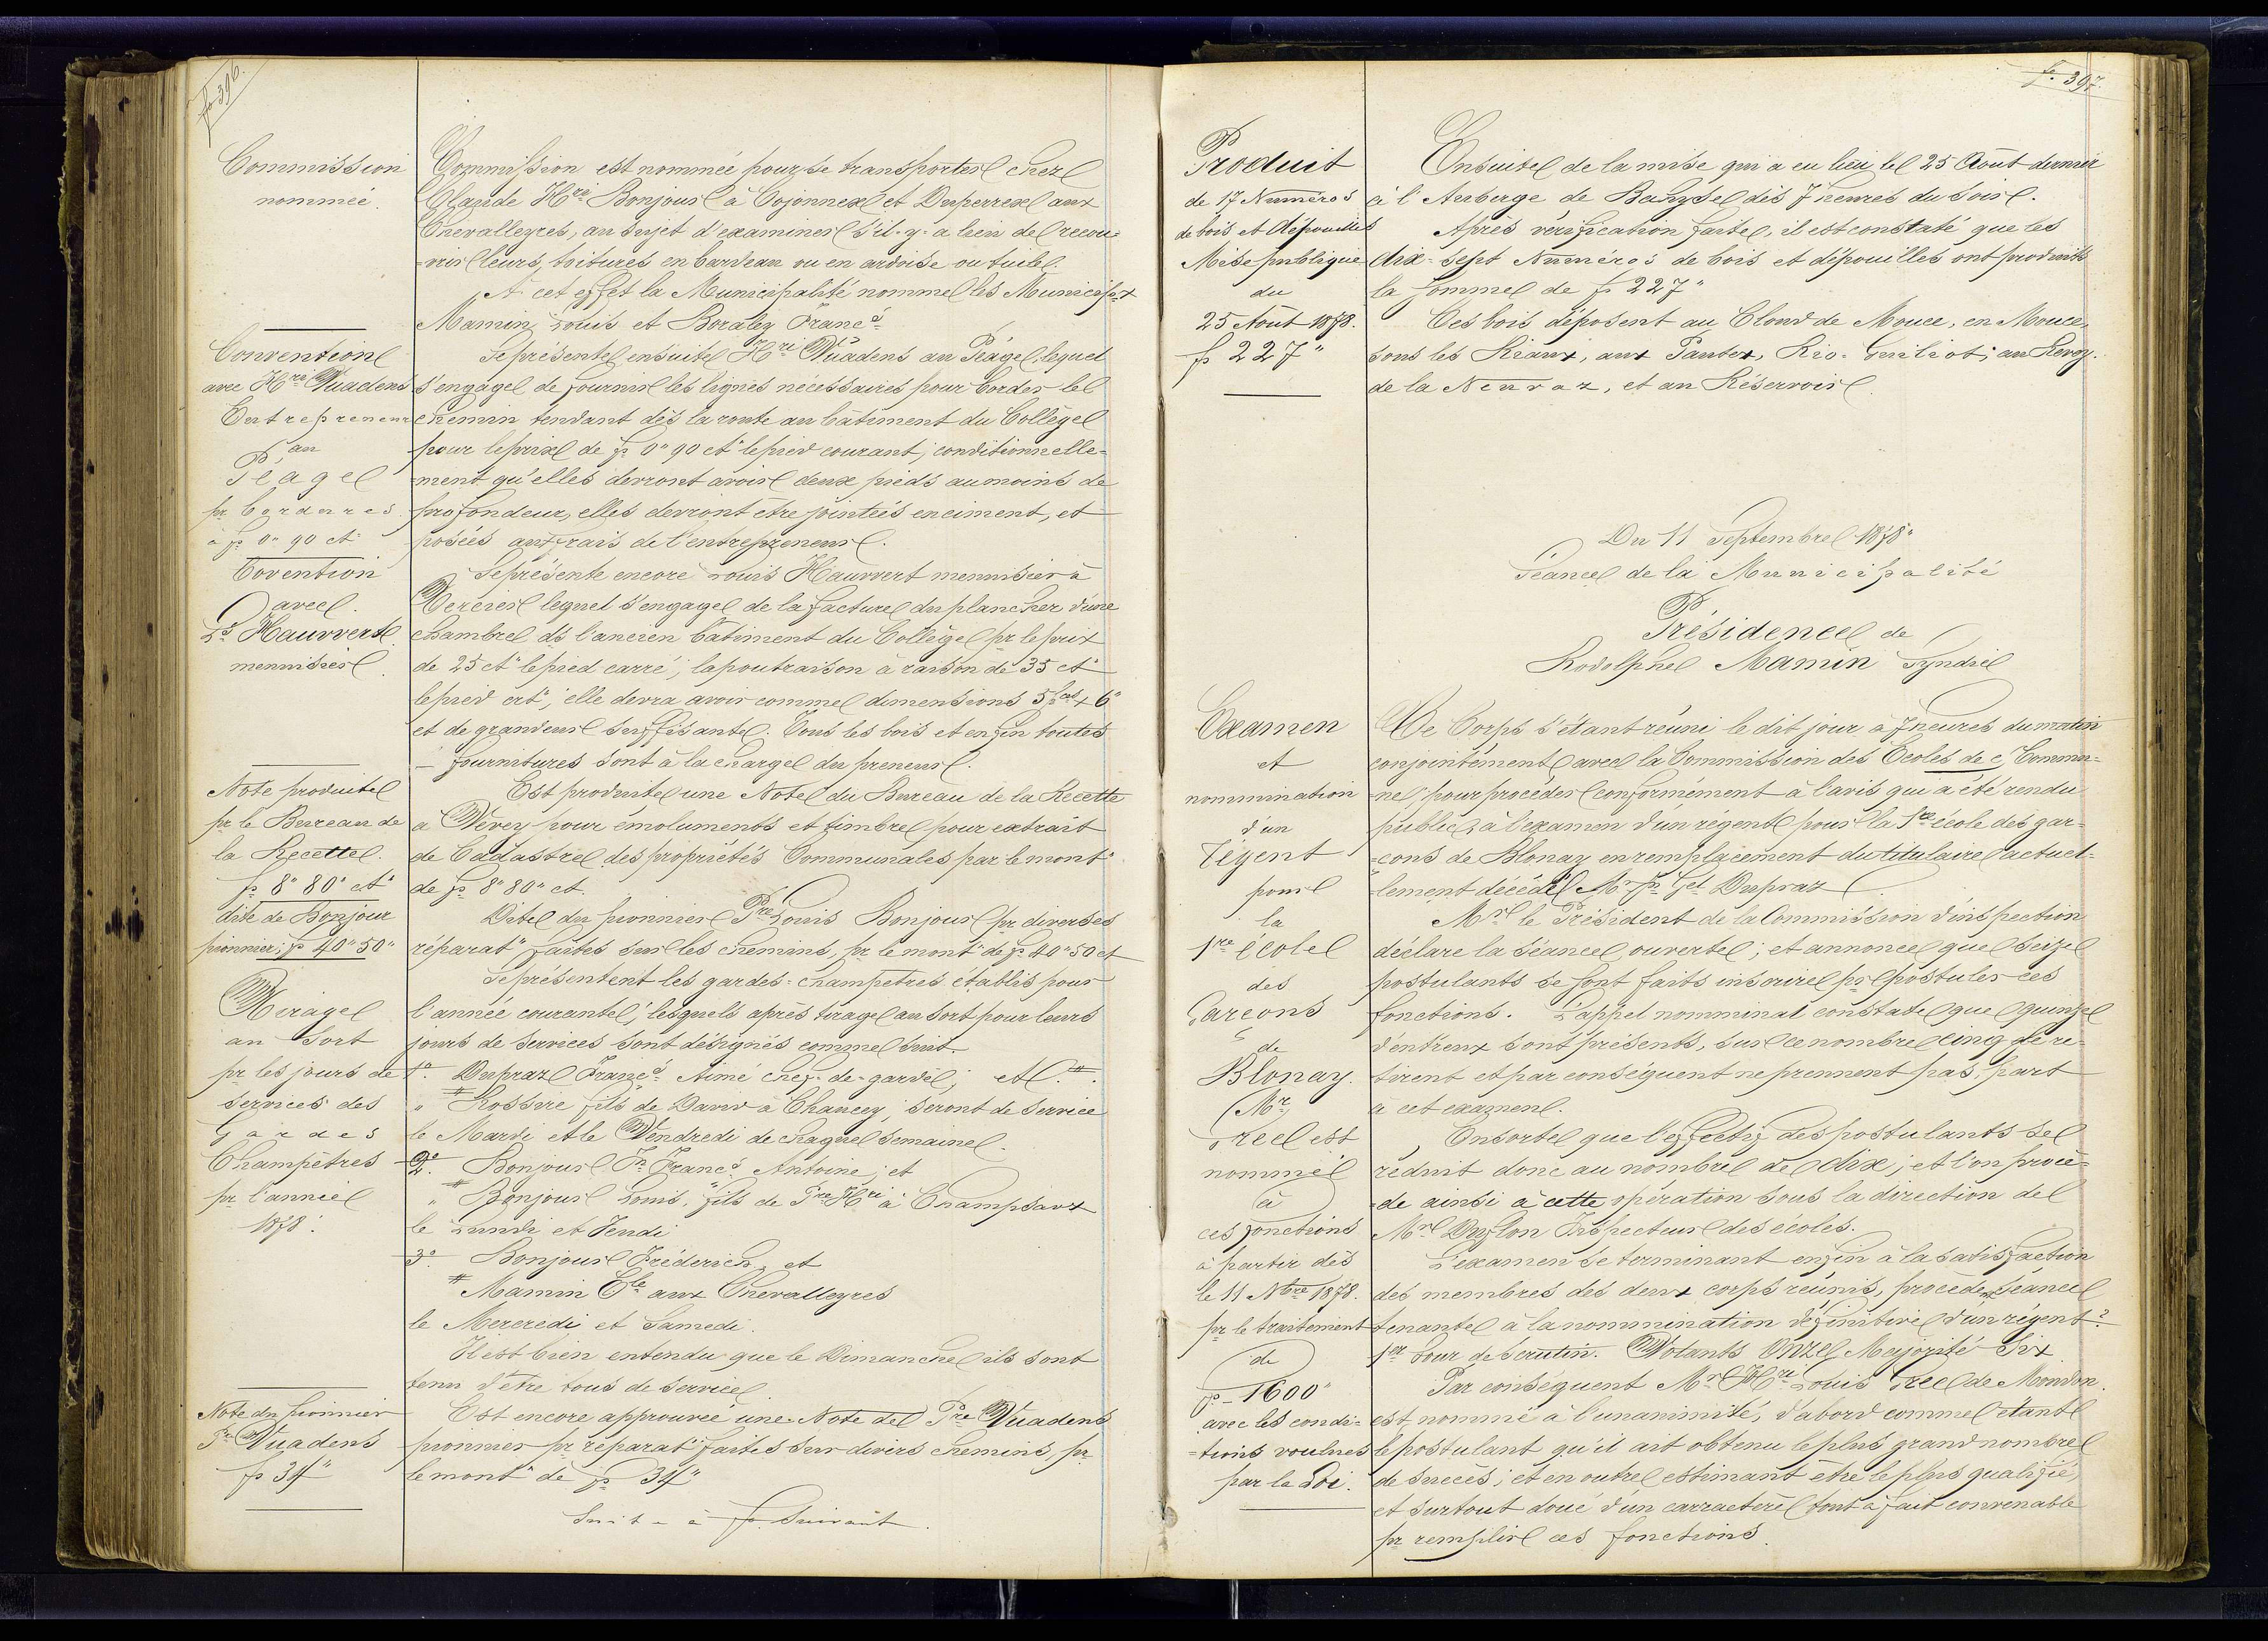 fo. 396.
Commission
nommée.
Commission est nommée pour se transporter chez
Claude Hri Bonjour à Cojonnex et Duperrex aux
Chevalleyres, au sujet d'examiner s'il-y-a lieu de recou=
=vrir leurs toitures en bardeau ou en ardoise ou tuile.
A cet effet la Municipalité nomme les Municipx
Mamin Louis et Boraley Francs
Convention
avec Hri Vuadens
Entrepreneur
au
Péage
pr bordures
à fs 0" 90 ct
Se présente ensuite Hri Vuadens au Péage, lequel
s'engage de fournir les lignes nécessaires pour border le
chemin tendant dès la route au bâtiment du Collège
pour le prix de fs 0" 90 ct le pied courant; conditionnelle=
=ment qu'elles devront avoir deux pieds au moins de
profondeur, elles devront être jointées en ciment, et
posées aux frais de l'entrepreneur.
Covention
avec
Ls Hauvvert
mennisier
Se présente encore Louis Hauvvert mennisier à
Vercier lequel s'engage de la facture du plancher d'une
chambre ds l'ancien bâtiment du Collège pr le prix
de 25 ct le pied carré, la poutraison à raison de 35 ct
le pied crt, elle devra avoir comme dimensions 5 x 6"
et de grandeur suffisante. Tous les bois et enfin toutes
— fournitures sont à la charge du preneur.
Note produite
pr le Bureau de
la Recette.
fs 8" 80" ct
Est produite une Note du Bureau de la Recette
a Vevey pour émoluments et timbre pour extrait
de Cadastre des propriétés Communales par le mont
de fs 8" 80" ct.
dite de Bonjour
pionnier, fs 40" 50"
Dite du pionnier Pre Louis Bonjour pr diverses
réparat faites sur les chemins, pr le mont de fs 40" 50 ct
Tirage
au Sort
pr les jours de
services des
Gardes
Champêtres
pr l'année
1878.
Se présentent les gardes-champetres établis pour
l'année courante, lesquels après tirage au sort pour leurs
jours de services sont désignés comme suit.
1o. Dupraz Francs Aimé chef-de-garde; et
" Rossire fils de David à Chancey, seront de service
le Mardi et le Vendredi de chaque semaine.
2o. Bonjour Jn Francs Antoine; et
" Bonjour Louis, fils de Pre Hri à Champsavx
le Lundi et Jeudi
3o. Bonjour Fréderich, et
" Mamin Cle aux Chevalleyres
le Mercredi et Samedi.
Il est bien entendu que le Dimanche ils sont
tenu d'être tous de service.
Note du pionnier
Pre Vuadens
fs 34"
Est encore approuvée une Note de Pre Vuadens
pionnier pr réparat faites sur divers chemins, pr
le mont de fs 34"
Suite à fo. Suivant.
fo. 397.
Produit
de 17 Numéros
de bois et dépouilles
Mise publique
du
25 Aout 1878.
fs 227"
Ensuite de la mise qui a eu lieu le 25 Août dernier
à l'Auberge de Bahyse dès 7 heures du soir.
Après vérification faite, il est constaté que les
dix-sept Numéros de bois et dépouilles ont produits
la somme de fs 227"
Ces bois déposent au Clond de Mouce, en Mouce,
sous les Riaux, aux Pautex, Rio-Guiliot; au Revoz
de la Neuvaz, et au Réservoir.
Du 11 Septembre 1878"
Séance de la Municipalité
Présidence de
Rodolphe Mamin Syndic
Examen
et
nommination
d'un
régent
pour
la
1re école
des
Garcons
de
Blonay.
(Mr
Treel est
nommé
à
ces fonctions
à partir dès
le 11 Nbre 1878.
pr le traitement
de
fs 1600"
avec les condi=
=tions voulues
par la Loi.
Ce Corps s'étant réuni le dit jour à 7 heures du matin
conjointement avec la Commission des Ecoles de ct Commu=
=ne, pour procéder conformément à l'avis qui a été rendu
public, à l'examen d'un régent pour la 1re école des gar=
=cons de Blonay en remplacement du titulaire actuel=
=lement décédé Mr Jn Gel Dupraz.
Mr le Président de la Commission d'inspection
déclare la séance ouverte; et annonce que seize
postulants se sont faits inscrire pr postuler ces
fonctions. L'appel nomminal constate que quinze
d'entreux sont présents, sur ce nombre cinq se re=
=tirent et par conséquent ne prennent pas, part
à cet examen.
Ensorte que l'effectif des postulants se
réduit donc au nombre de dix; et l'on procè=
=de ainsi à cette opération sous la direction de
Mr Duflon Inspecteur des écoles.
L'examen se terminant enfin à la satisfaction
des membres des deux corps réunis, procède séance
tenante à la nommination définitive d'un régent.
1er tour de scrutin. Votants Onze, Majorité Six
Par conséquent Mr Hri Louis Treel de Moudon
est nommé à l'unanimité, d'abord comme étant
le postulant qu'il ait obtenu le plus grand nombre
de succès; et en outre estimant être le plus qualifié,
et surtout doué d'un carractère tout à fait convenable
pr remplir ces fonctions.